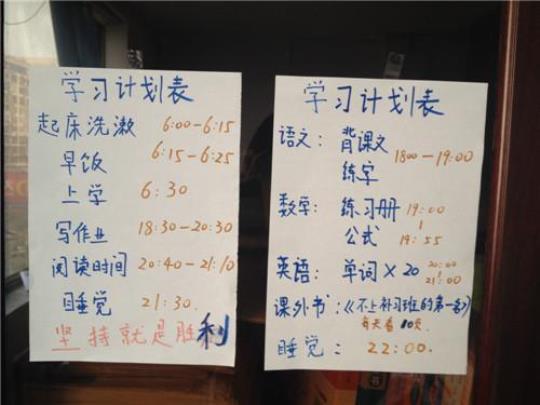 学习计划表
起床洗漱 6:00-6:15
早饭 6:15-6:25
上学 6:30
写作业 18:30-20:30
阅读时间 20:40-21:10
睡觉 21:30
坚持就是胜利
学习计划表
语文: 背课文
练字 1800-19:00
数学: 练习册 19:00
公式 19:55
英语: 单词×20 20:00
21:00
课外书:《不上补习班的第一名》
每天看10次.
睡觉: 22:00.